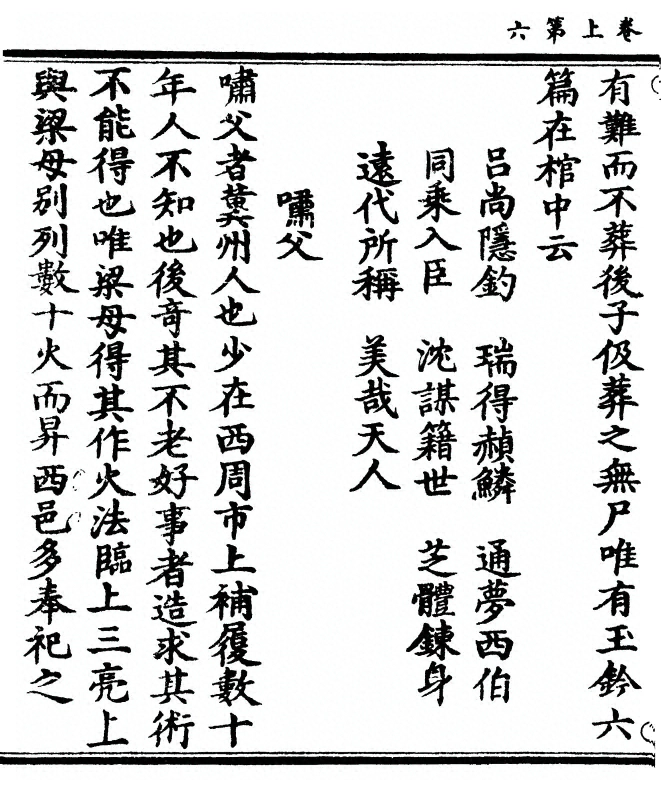 卷上第六
有難而不葬後子伋葬之無尸唯有玉鈐六
篇在棺中云
呂尚隱釣　瑞得赬鱗　通夢西伯
同乘入臣　沈謀籍世　芝體鍊身
遠代所稱　美哉天人
嘯父
嘯父者冀州人也少在西周市上補履數十
年人不知也後奇其不老好事者造求其術
不能得也唯梁母得其作火法臨上三亮上
與梁母別列數十火而昇西邑多奉祀之